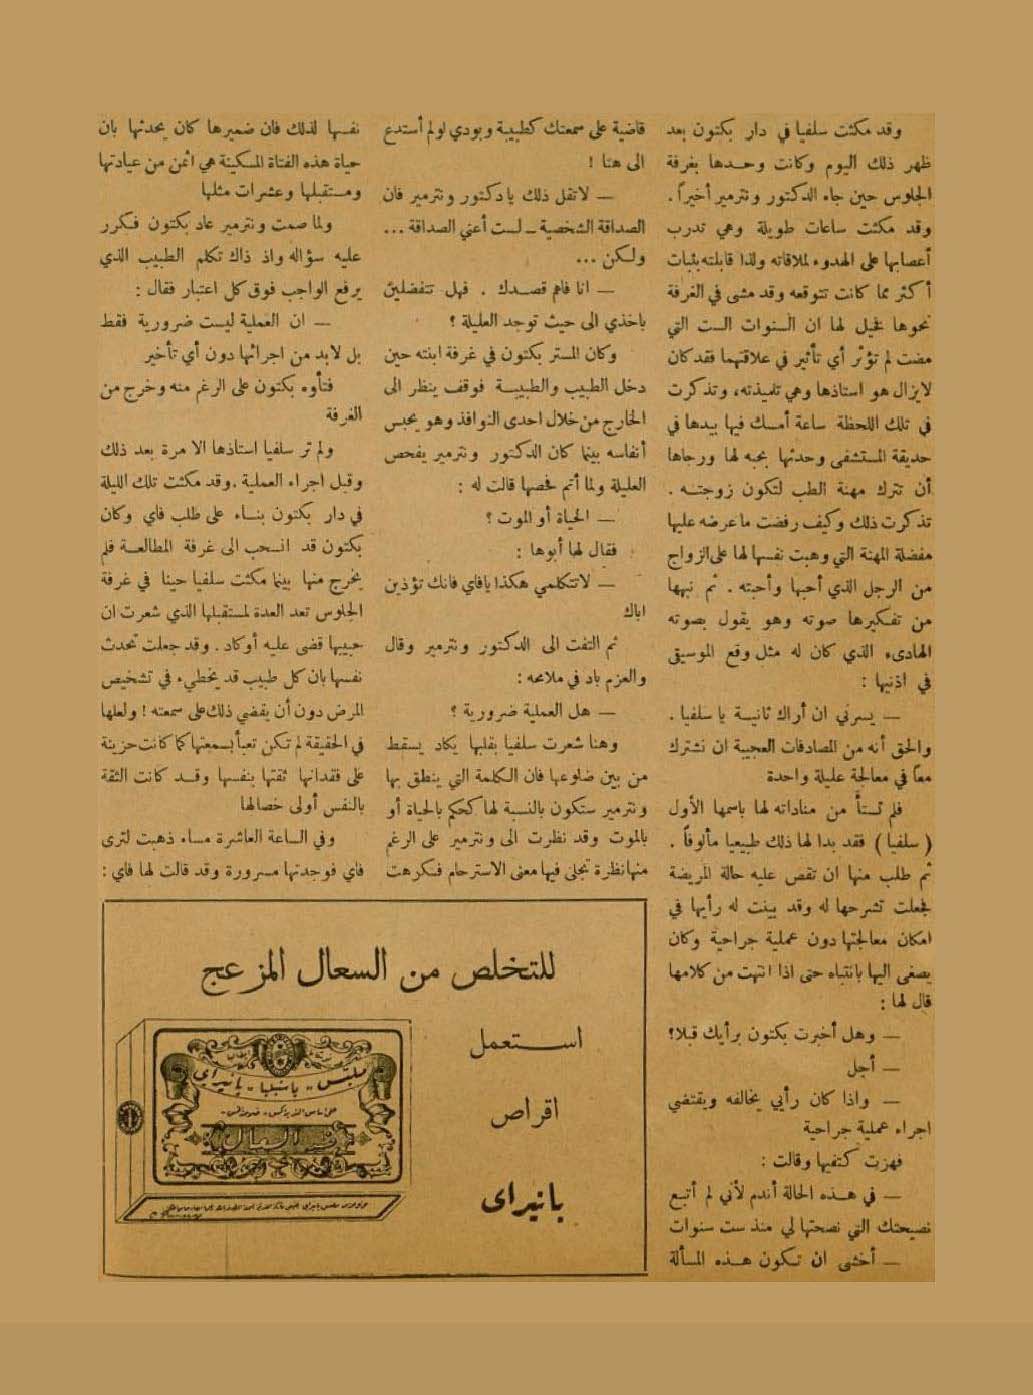 وقد مكثت سلفيا في دار بكتون بعد
ظهر ذلك اليوم وكانت وحدها بغرفة
الجلوس حين جاء الدكتور ونترمير أخيراً .
وقد مكثت ساعات طويلة وهي تدرب
أعصابها على الهدوء لملاقاته ولذا قابلته بثبات
أكثر مما كانت تتوقعه وقد مشى في الغرفة
نحوها فخيل لها ان السنوات الست التي
مضت لم تؤثر أي تأثير في علاقتهما فقد كان
لايزال هو استاذها وهي تلميذته ، وتذكرت
في تلك اللحظة ساعة أمسك فيها بيدها في
حديقة المستشفى وحدثها بحبه لها ورجاها
أن تترك مهنة الطب لتكون زوجته .
تذكرت ذلك وكيف رفضت ما عرضه عليها
مفضلة المهنة التي وهبت نفسها لها على الزواج
من الرجل الذي أحبها وأحبته . ثم نبهها
من تفكيرها صوته وهو يقول بصوته
الهادىء الذي كان له مثل وقع الموسيقى
في اذنيها :
— يسرني ان أراك ثانية يا سلفيا .
والحق أنه من المصادفات العجيبة ان نشترك
معاً في معالجة عليلة واحدة
فلم تستأ من مناداته لها باسمها الأول
( سلفيا ) فقد بدا لها ذلك طبيعيا مألوفاً .
ثم طلب منها ان تقص عليه حالة المريضة
فجعلت تشرحها له وقد بينت له رأيها في
امكان معالجتها دون عملية جراحية وكان
يصغى اليها بانتباه حتى اذا انتهت من كلامها
قال لها :
— وهل أخبرت بكتون برأيك قبلا؟
— أجل
— واذا كان رأيي يخالفه ويقتضي
اجراء عملية جراحية
فهزت كتفيها وقالت :
— في هذه الحالة أندم لأني لم أتبع
نصيحتك التي نصحتها لي منذ ست سنوات
— أخشى ان تكون هذه المسألة
قاضية على سمعتك كطبيبة وبودي لو لم أستدع
الى هنا !
— لاتقل ذلك يادكتور ونترمير فان
الصداقة الشخصية — لست أعني الصداقة ...
ولكن ...
— انا فاهم قصدك . فهل تتفضلين
باخذي الى حيث توجد العليلة ؟
وكان المستر بكتون في غرفة ابنته حين
دخل الطبيب والطبيبة فوقف ينظر الى
الخارج من خلال احدى النوافذ وهو يحبس
أنفاسه بينما كان الدكتور ونترمير يفحص
العليلة ولما أتم فحصها قالت له :
— الحياة أو الموت ؟
فقال لها أبوها :
— لاتتكلمي هكذا يافاي فانك تؤذين
اباك
ثم التفت الى الدكتور ونترمير وقال
والعزم باد في ملامحه :
— هل العملية ضرورية ؟
وهنا شعرت سلفيا بقلبها يكاد يسقط
من بين ضلوعها فان الكلمة التي ينطق بها
ونترمير ستكون بالنسبة لها كحكم بالحياة أو
بالموت وقد نظرت الى ونترمير على الرغم
منها نظرة تجلى فيها معنى الاسترحام فكرهت
نفسها لذلك فان ضميرها كان يحدثها بان
حياة هذه الفتاة المسكينة هي أثمن من عيادتها
ومستقبلها وعشرات مثلها
ولما صمت ونترمير عاد بكتون فكرر
عليه سؤاله واذ ذاك تكلم الطبيب الذي
يرفع الواجب فوق كل اعتبار فقال :
— ان العملية ليست ضرورية فقط
بل لابد من اجرائها دون أي تأخير
فتأوه بكتون على الرغم منه وخرج من
الغرفة
ولم تر سلفيا استاذها الا مرة بعد ذلك
وقبل اجراء العملية . وقد مكثت تلك الليلة
في دار بكتون بناء على طلب فاي وكان
بكتون قد انسحب الى غرفة المطالعة فلم
يخرج منها بينما مكثت سلفيا حينا في غرفة
الجلوس تعد العدة لمستقبلها الذي شعرت ان
حبيبها قضى عليه أو كاد . وقد جعلت تحدث
نفسها بان كل طبيب قد يخطيء في تشخيص
المرض دون أن يقضي ذلك على سمعته ! ولعلها
في الحقيقة لم تكن تعبأ بسمعتها كما كانت حزينة
على فقدانها ثقتها بنفسها وقد كانت الثقة
بالنفس أولى خصالها
وفي الساعة العاشرة مساء ذهبت لترى
فاي فوجدتها مسرورة وقد قالت لها فاي :
للتخلص من السعال المزعج
استعمل
اقراص
بانيراى
ملبس - باستيليا - بانيراى
ضد السعال